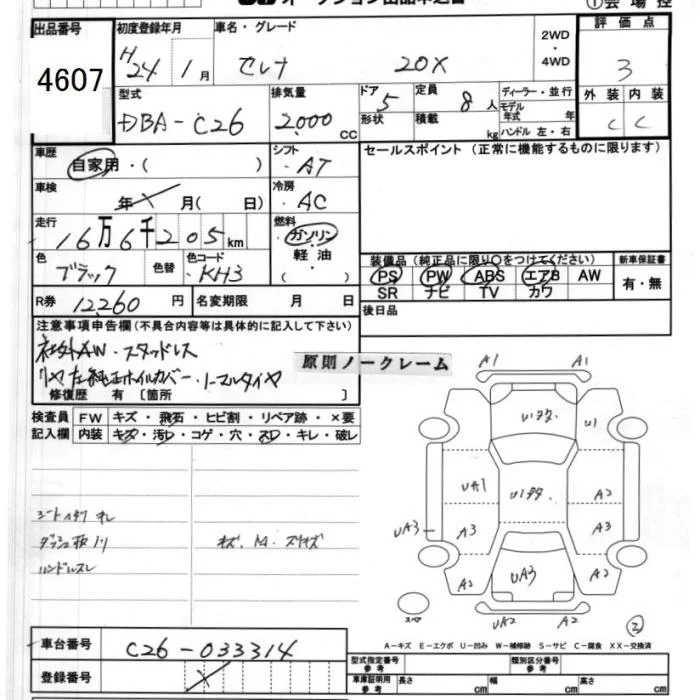 オークション出品申込書 ①会場控
出品番号 4607
初度登録年月 H24年 1月
車名・グレード セレナ 20X
2WD・4WD
評価点 3
外装 C 内装 C
型式 DBA-C26
排気量 2,000 CC
ドア 5 形状
定員 8人
積載 kg
ディーラー・並行
モデル年式 年
ハンドル 左・右
車歴 自家用・( )
シフト AT
セールスポイント (正常に機能するものに限ります)
車検 年 月( 日)
冷房 AC
走行 16万6千205km
燃料 ガソリン・軽油・( )
色 ブラック 色替 色コード KH3
装備品 (純正品に限り○をつけてください) 新車保証書
PS PW ABS エアB AW 有・無
SR ナビ TV カワ
R券 12,260円 名変期限 月 日
後日品
注意事項申告欄(不具合内容等は具体的に記入して下さい)
社外AW・スタッドレス
ノーマルタイヤ
修復歴 有 [箇所 ]
原則ノークレーム
検査員 FW キズ・飛石・ヒビ割・リペア跡・×要
記入欄 内装 キズ・汚レ・コゲ・穴・スレ・キレ・破レ
ハンドルスレ
A1 A1
U1
UA1 A2
UA3 A3 A3
A2 UA3 A2
UA2 A2
スペア
②
車台番号 C26-033314
A-キズ E-エクボ U-凹み W-補修跡 S-サビ C-腐食 XX-交換済
登録番号
型式指定番号 参考 類別区分番号 参考
車庫証明用 参考 長さ cm 幅 cm 高さ cm